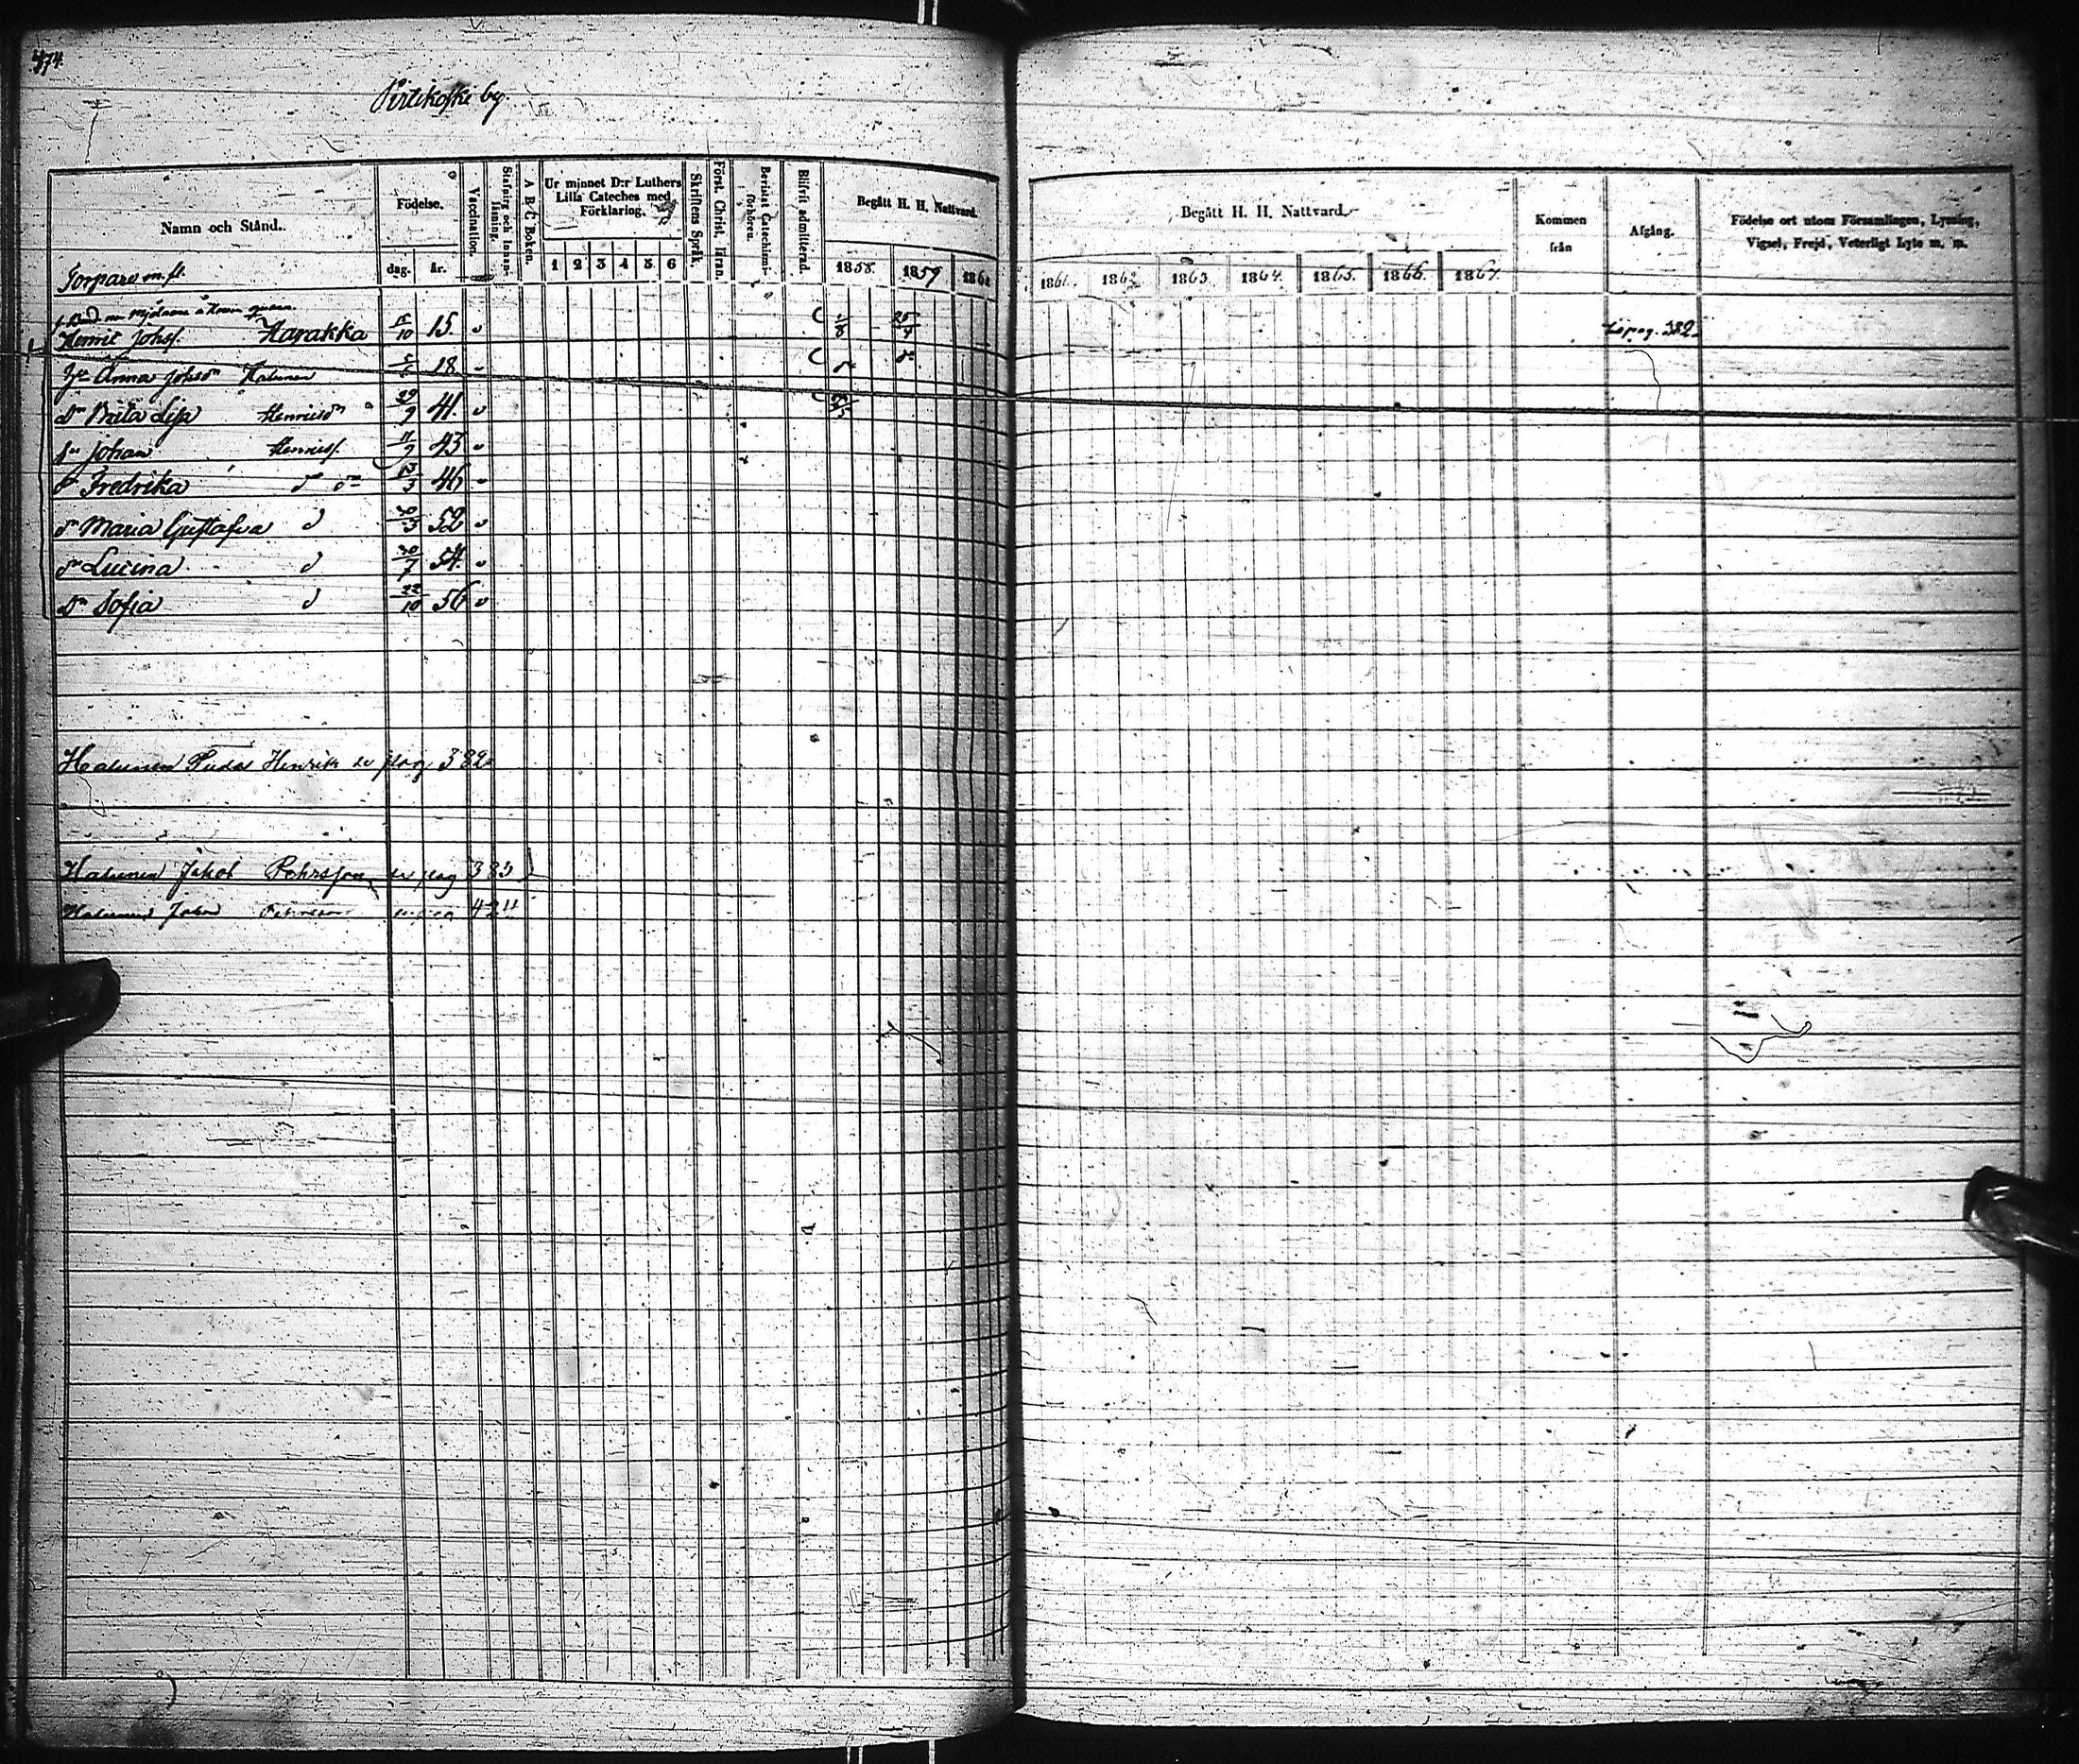 474.
Pirtikoski by.
Namn och Stånd.
Födelse.
dag. år.
Vaccination.
Stafning och innanläsning.
A B C Boken.
Ur minnet D:r Luthers Lilla Cateches med Förklaring.
1 2 3 4 5 6
Skriftens Språk.
Först. Christ. läran.
Bevistat Catechismi-förhören.
Blifvit admitterad.
Begått H. H. Nattvard.
1858. 1859 1860
Begått H. H. Nattvard.
1861. 1862 1863 1864. 1865. 1866. 1867.
Kommen från
Afgång.
Födelse ort utom Församlingen, Lysning, Vigsel, Frejd, Veterligt Lyte m. m.
Torpare m. fl.
Henric Johss. Harakka 15/10 15. 25/4 L. pag. 382.
Anna Johsdr Halunen 18.
Dr Brita Lisa Henricsdr 29/9 41.
Sn Johan Henricss. 11/9 43
Dr Fredrika d dr 13/3 46
dr Maria Gustafva d 52
dr Lucina d 30/7 54.
Dr Sofia d 22/10 56
Halunen Henrik se pag 382
Halunen Jakob Pehrsson se pag 383
Halunen